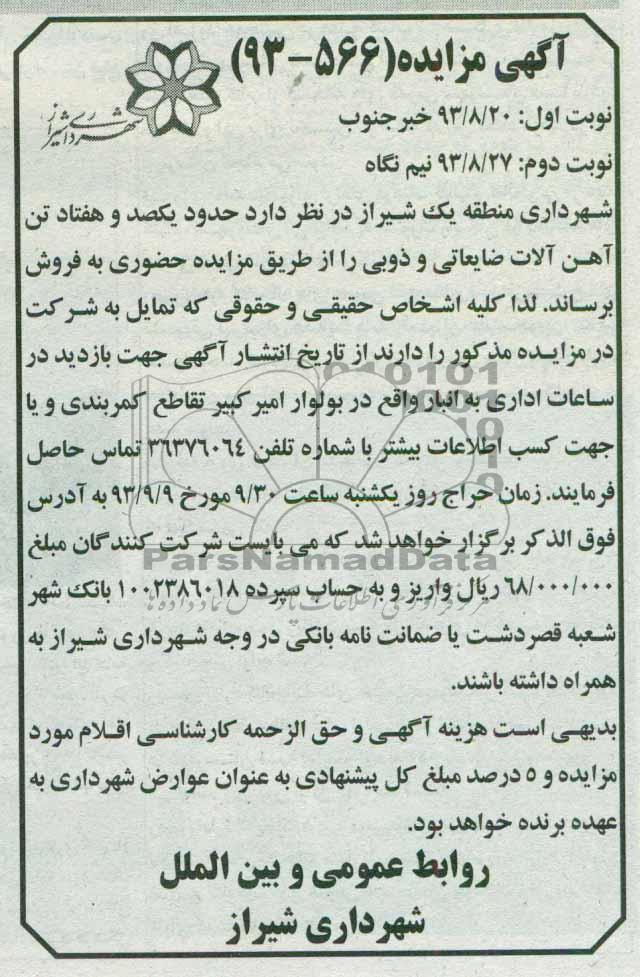 آگهی مزایده (۵۶۶-۹۳)
شهرداری شیراز
نوبت اول: ۹۳/۸/۲۰ خبر جنوب
نوبت دوم: ۹۳/۸/۲۷ نیم نگاه
شهرداری منطقه یک شیراز در نظر دارد حدود یکصد و هفتاد تن
آهن آلات ضایعاتی و ذوبی را از طریق مزایده حضوری به فروش
برساند. لذا کلیه اشخاص حقیقی و حقوقی که تمایل به شرکت
در مزایده مذکور را دارند از تاریخ انتشار آگهی جهت بازدید در
ساعات اداری به انبار واقع در بولوار امیرکبیر تقاطع کمربندی و یا
جهت کسب اطلاعات بیشتر با شماره تلفن ۳۶۳۷۶۰۶۴ تماس حاصل
فرمایند. زمان حراج روز یکشنبه ساعت ۹/۳۰ مورخ ۹۳/۹/۹ به آدرس
فوق الذکر برگزار خواهد شد که می بایست شرکت کنندگان مبلغ
ParsNamadData
۶۸/۰۰۰/۰۰۰ ریال واریز و به حساب سپرده ۱۰۰۲۳۸۶۰۱۸ بانک شهر
شعبه قصردشت یا ضمانت نامه بانکی در وجه شهرداری شیراز به
همراه داشته باشند.
بدیهی است هزینه آگهی و حق الزحمه کارشناسی اقلام مورد
مزایده و ۵ درصد مبلغ کل پیشنهادی به عنوان عوارض شهرداری به
عهده برنده خواهد بود.
روابط عمومی و بین الملل
شهرداری شیراز